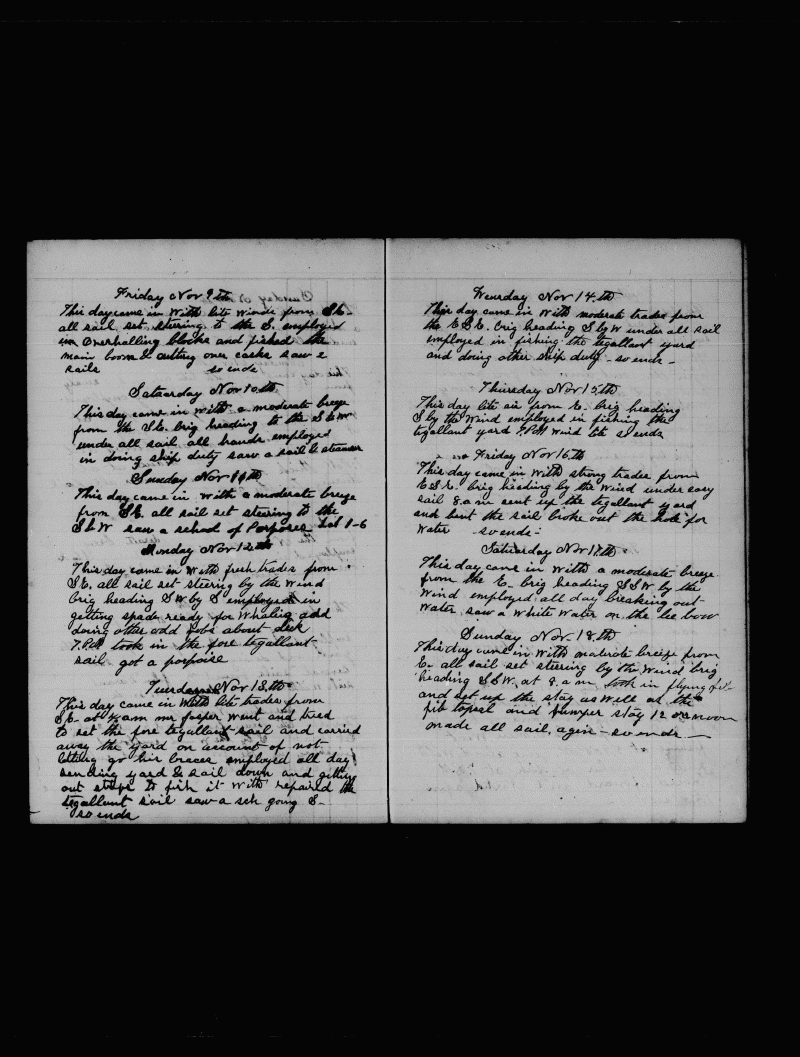 Friday Nov 9.th
This day came in With lite Winds from SE-
all sail set steering to the S. employed
in Overhalling blocks and fished the
main boom & cutting over casks saw 2
sails so ends
Sataarday Nov 10.th
This day came in with a moderate breze
from the SE. brig heading to the S & W
under all sail all hands employed
in doing ship duty saw a sail & steamer
Sunday Nov 11th
This day came in with a moderate breze
from SE. all sail set steering to the
S & W saw a school of Porposes Lat 1-6
Monday Nov 12th
This day came in with fresh trades from
SE. all sail set steering by the Wind
brig heading SW. by S employed in
getting spade ready for Whaling and
doing other odd jobs about deck
7.PM took in the fore tegallant-
sail got a porpoise
Tuesday Nov 13.th
This day came in With lite trades from
SE. at 4 am mr Josper went and tried
to set the fore tegallant sail and carried
away the yard on account of not
letting go his braces employed all day
sending yard & sail down and getting
out to fish it with repaired the
tegallant sail saw a sch going S-
so ends
Wensday Nov 14.th
This day came in With moderate trades from
the E.S.E. brig heading S by W under all sail
employed in fishing the tegallant yard
and doing other ship duty - so ends -
Thursday Nov 15.th
This day lite air from E- brig heading
S by the Wind employed in fishing the
tegallant yard 7.PM wind lite so ends
Friday Nov 16.th
This day came in With strong trades from
E.S.E. brig heading by the Wind under easy
sail 8.a m sent up the tegallant yard
and bent the sail broke out the hole for
Water so ends -
Saturday Nov 17.th
This day came in With a moderate breeze
from the E- brig heading SSW by the
Wind employed all day breaking out
Water saw a White Water on the lee bow
Sunday Nov. 18.th
This day came in With moderate breeze from
E- all sail set steering by the Wind brig
heading SSW. at 8.a m took in flying
and set up the stay as Well as the
topsail and jumper stay 12 noon
made all sail agin - so ends -